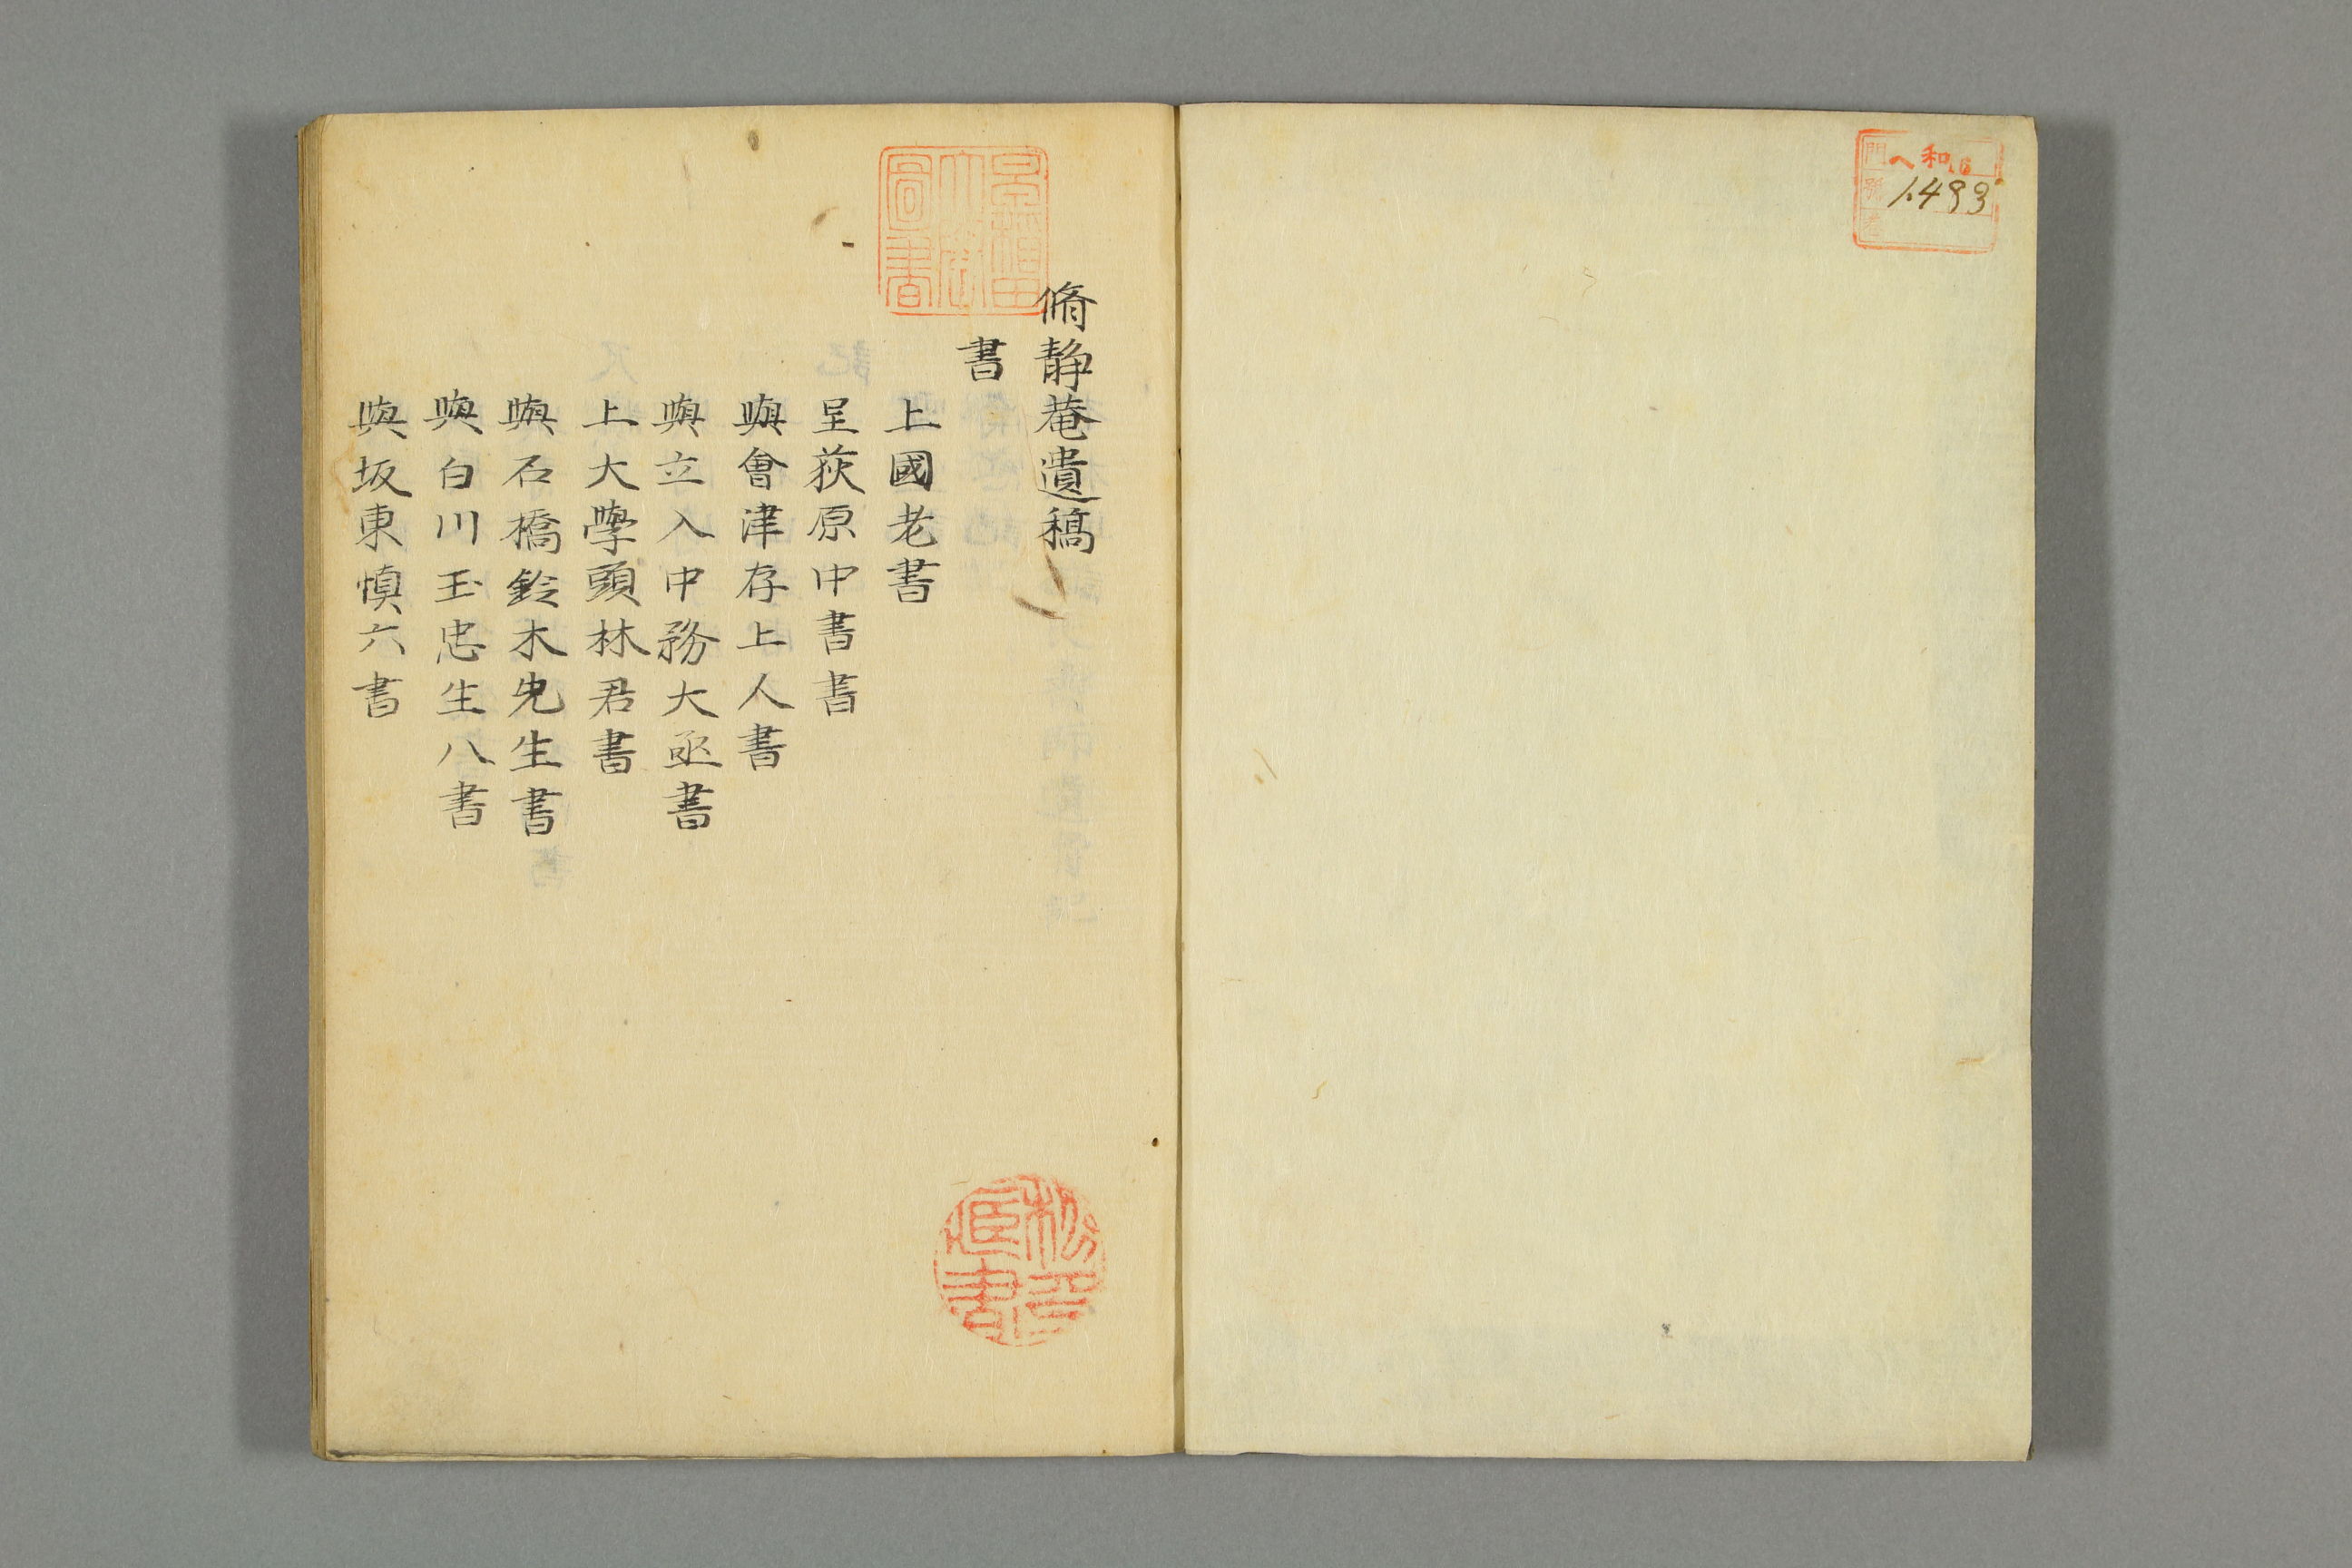 門 ヘ和16
號 1,493
卷
脩静菴遺稿
書
上國老書
呈荻原中書書
與會津存上人書
與立入中務大丞書
上大學頭林君書
與石橋鈴木先生書
與白川玉忠生八書
與坂東慎六書